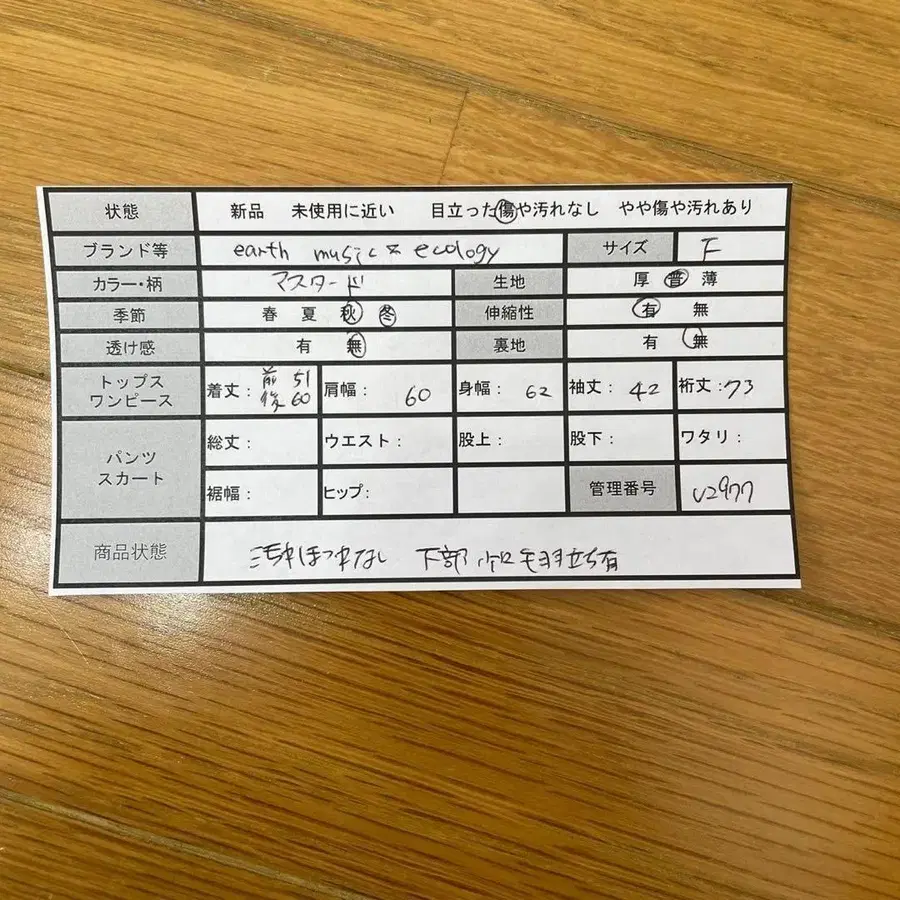 状態 新品 未使用に近い 目立った傷や汚れなし やや傷や汚れあり
ブランド等 earth music & ecology サイズ F
カラー・柄 マスタード 生地 厚 普 薄
季節 春 夏 秋 冬 伸縮性 有 無
透け感 有 無 裏地 有 無
トップス ワンピース 着丈: 前 51 後 60 肩幅: 60 身幅: 62 袖丈: 42 裄丈: 73
パンツ スカート 総丈: ウエスト: 股上: 股下: ワタリ:
裾幅: ヒップ: 管理番号 U2977
商品状態 汚れほつれなし 下部 袖口 毛羽立ち有